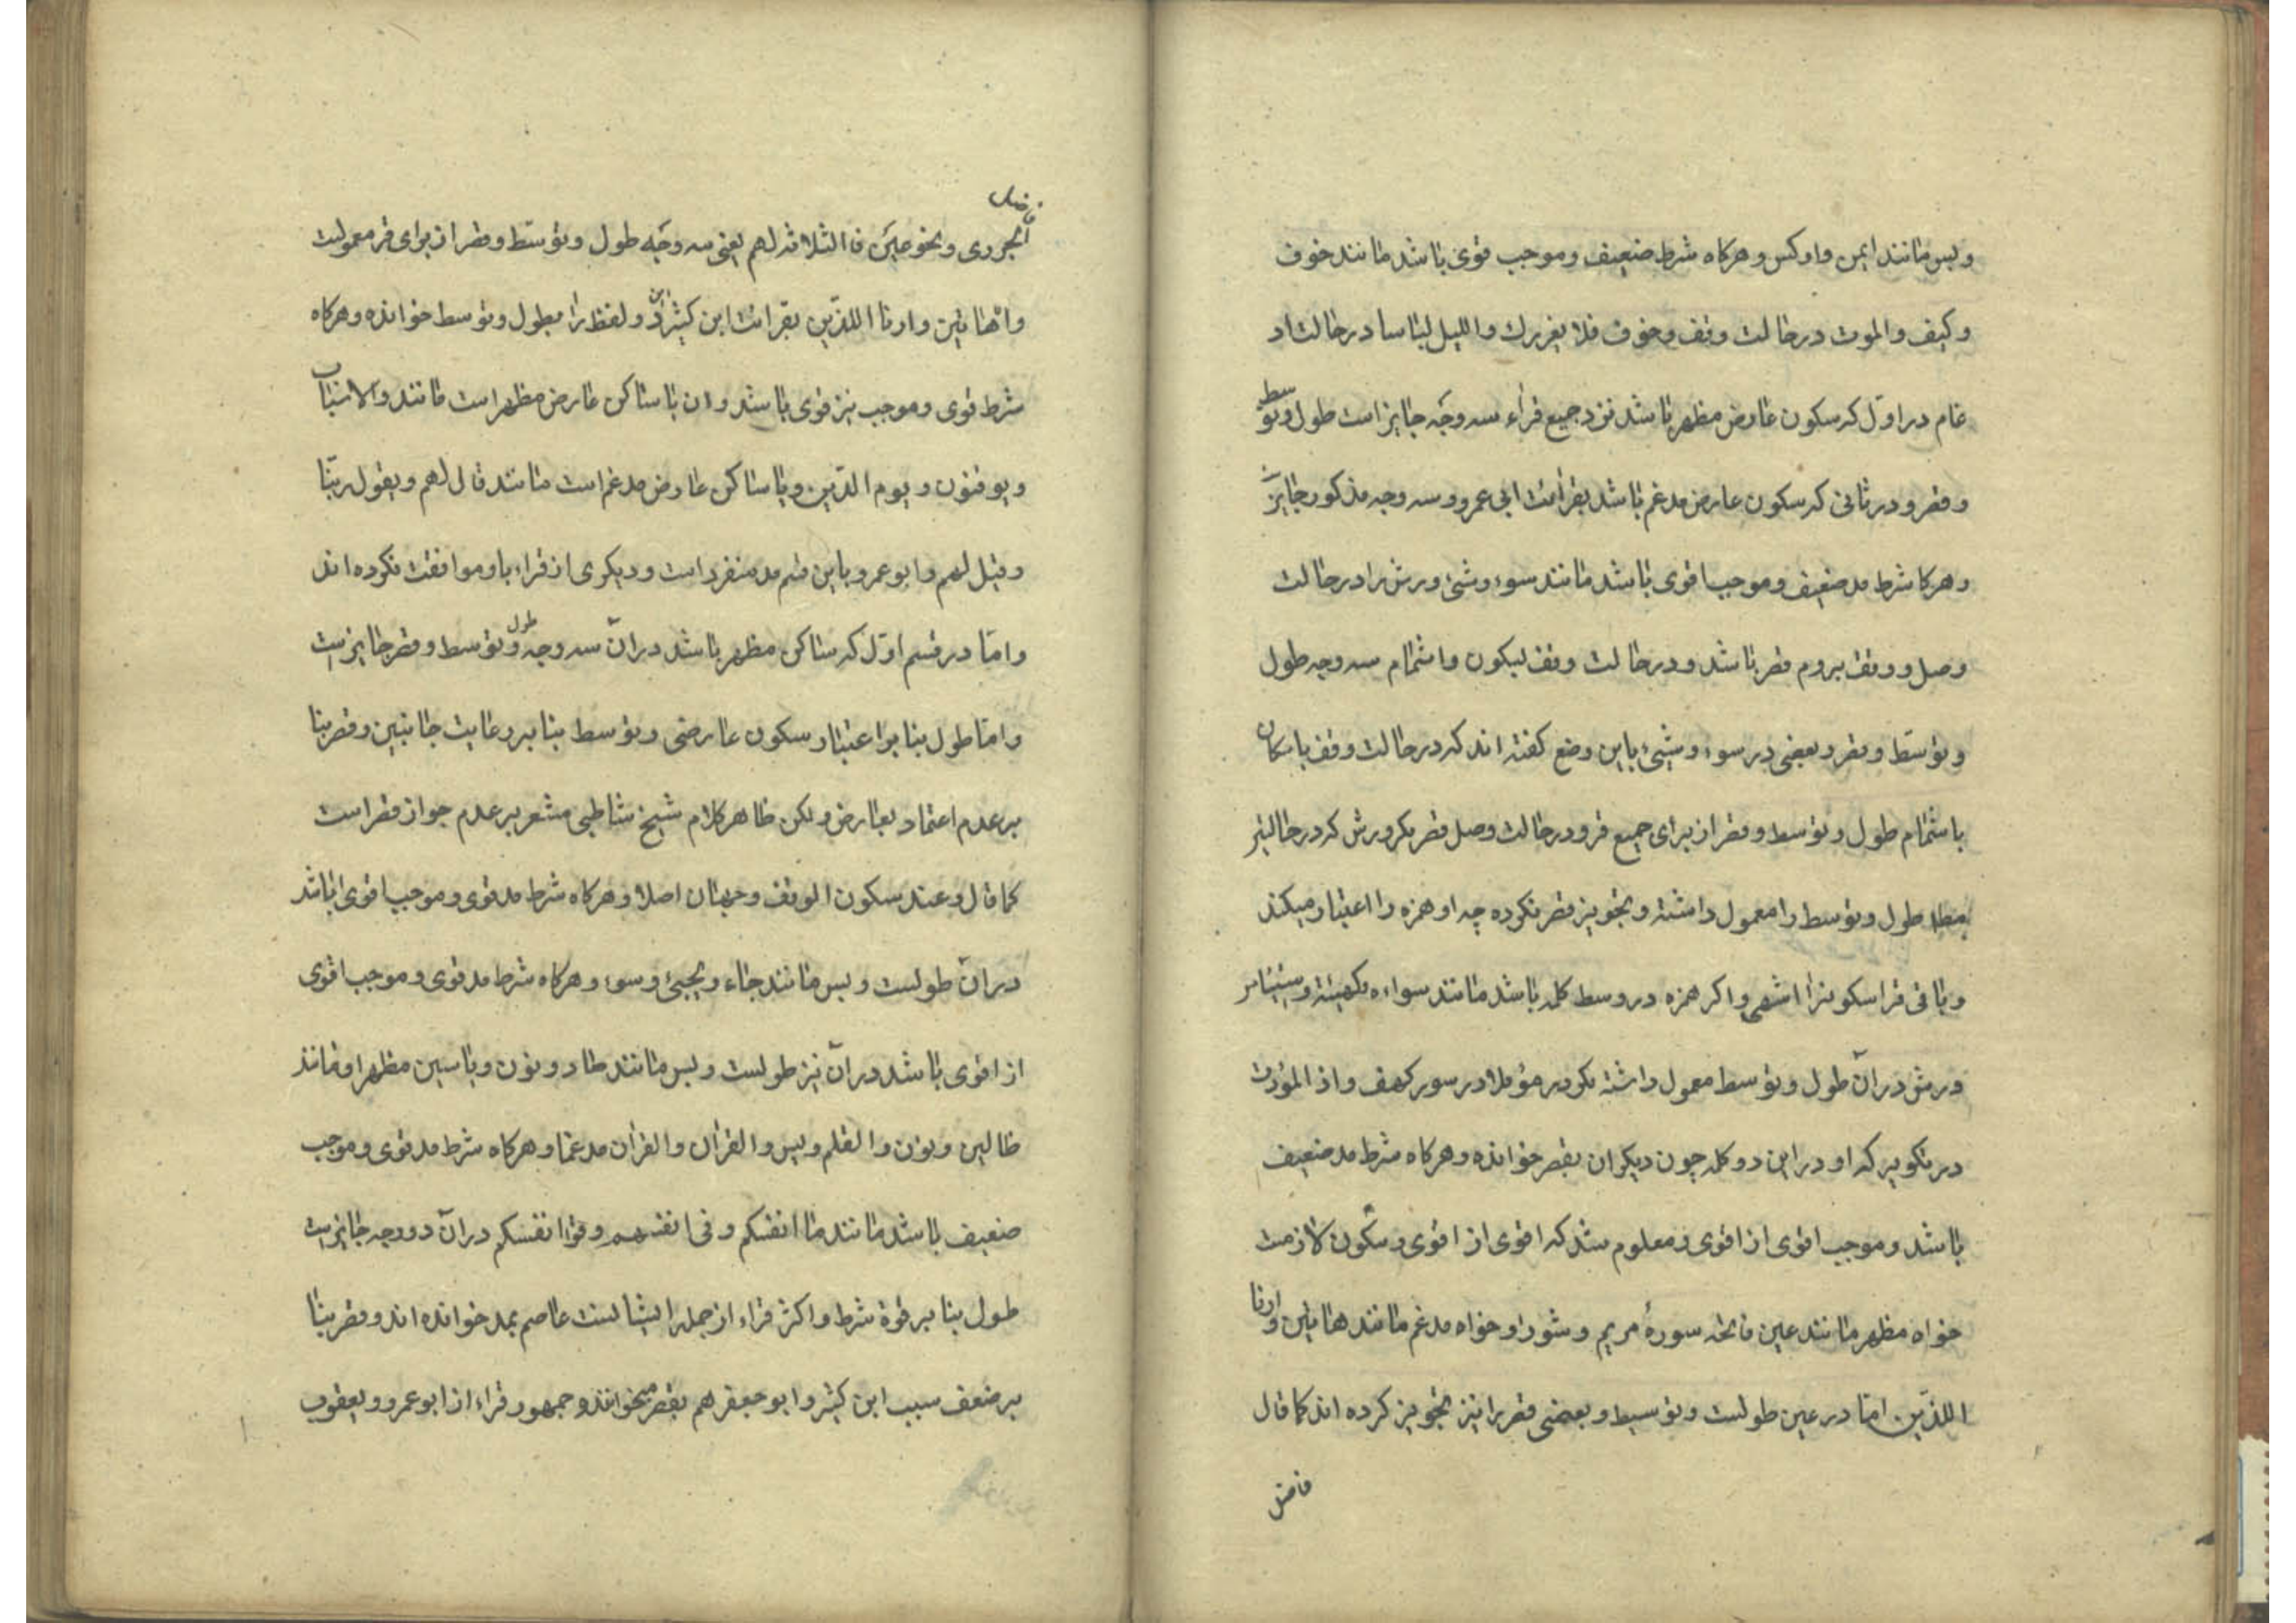 وبس مانند ایمن واوکس وهرکاه شرط ضعیف وموجب قوی باشد مانند خوف
وکیف والموت درحالت وقف وخوف فلا یغررک واللیل لباسا درحالت اد
غام در اوّل که سکون عارض مظهر باشد نزد جمیع قراء سه وجه جایز است طول وتوسط
وقصر ودر ثانی که سکون عارض مدغم باشد بقرائت ابی عمرو سه وجه مذکور جایز
وهرکا شرط مد ضعیف وموجب اقوی باشد مانند سوء وشئ ورش را درحالت
وصل ووقف بروم قصر باشد ودرحالت وقف لیکون واشمام سه وجه طول
وتوسّط وقصر وبعضی در سوء وشیئ باین وضع کفته اند که درحالت وقف باسکان
باشمام طول وتوسط وقصر از برای جمیع قرو درحالت وصل قصر بکر ورش که درحالتیر
مطه طول وتوسط را معمول داشته وتجویز قصر نکرده چه او همزه را اعتبار میکند
وباقی قرا سکونرا اشهی واکر همزه در وسط کله باشد مانند سواءه کهیئة
ورش در آن طول وتوسط معمول داشته بکودر مؤئلا در سوره کهف واذ المؤدت
در تکویر که او در این دو کله چون دیکران بقصر خوانده وهرکاه شرط مد ضعیف
باشد وموجب اقوی از اقوی ومعلوم شد که اقوی از اقوی وسکون لازمت
خواه مظهر مانند عین فاتحه سورهٔ مریم وشورا وخواه مدغم مانند هاتین وارنا
اللذّین امّا در عین طولست وتوسیط وبعضی قصر را نیز تجویز کرده اند کما قال
فاضل
فاضل
الجزری ونحو عین فالثلاثه لهم یعنی سه وجه طول وتوسّط وقصر از برای قر معمولت
وامّا هاتین وارنا اللذّین بقرائت ابن کثیر این دو لفظ را بطول وتوسط خوانده وهرکاه
شرط قوی وموجب نیز قوی باشد وان با ساکن عارض مظهر است مانند والاسباب
ویوقنون ویوم الدّین وبا ساکن عارض مدغم است مانند قال لهم ویقول ربّنا
وقیل لهم وابو عمرو باین قسم مد منفرد است ودیکری از قراء باو موافقت نکرده اند
وامّا در قسم اوّل که ساکن مظهر باشد در آن سه وجه طول وتوسط وقصر جایزست
وامّا طول بنا بر اعتبار سکون عارضی وتوسط بنا بر رعایت جانبین وقصر بنا
بر عدم اعتماد بعارض ولکن ظاهر کلام شیخ شاطبی مشعر بر عدم جواز قصر است
کما قال وعند سکون الوقف وجهان اصلا وهرکاه شرط مد قوی وموجب اقوی باشد
در آن طولست وبس مانند جاء ویجیئ وسوء وهرکاه شرط مد قوی وموجب اقوی
از اقوی باشد در آن نیز طولست وبس مانند صاد ونون ویا سین مظهرا ومانند
ظالین ونون والقلم ویس والقران والقران مدغما وهرکاه شرط مد قوی وموجب
ضعیف باشد مانند ما انفسکم وفی انفسهم وقوا انفسکم در آن دو وجه جایزست
طول بنا بر قوة شرط واکثر قراء از جمله ایشانست عاصم بمد خوانده اند وقصر بنا
بر ضعف سبب ابن کثیر وابو جعفر هم بقصر میخوانند وجمهور قراء از ابو عمرو ویعقوب